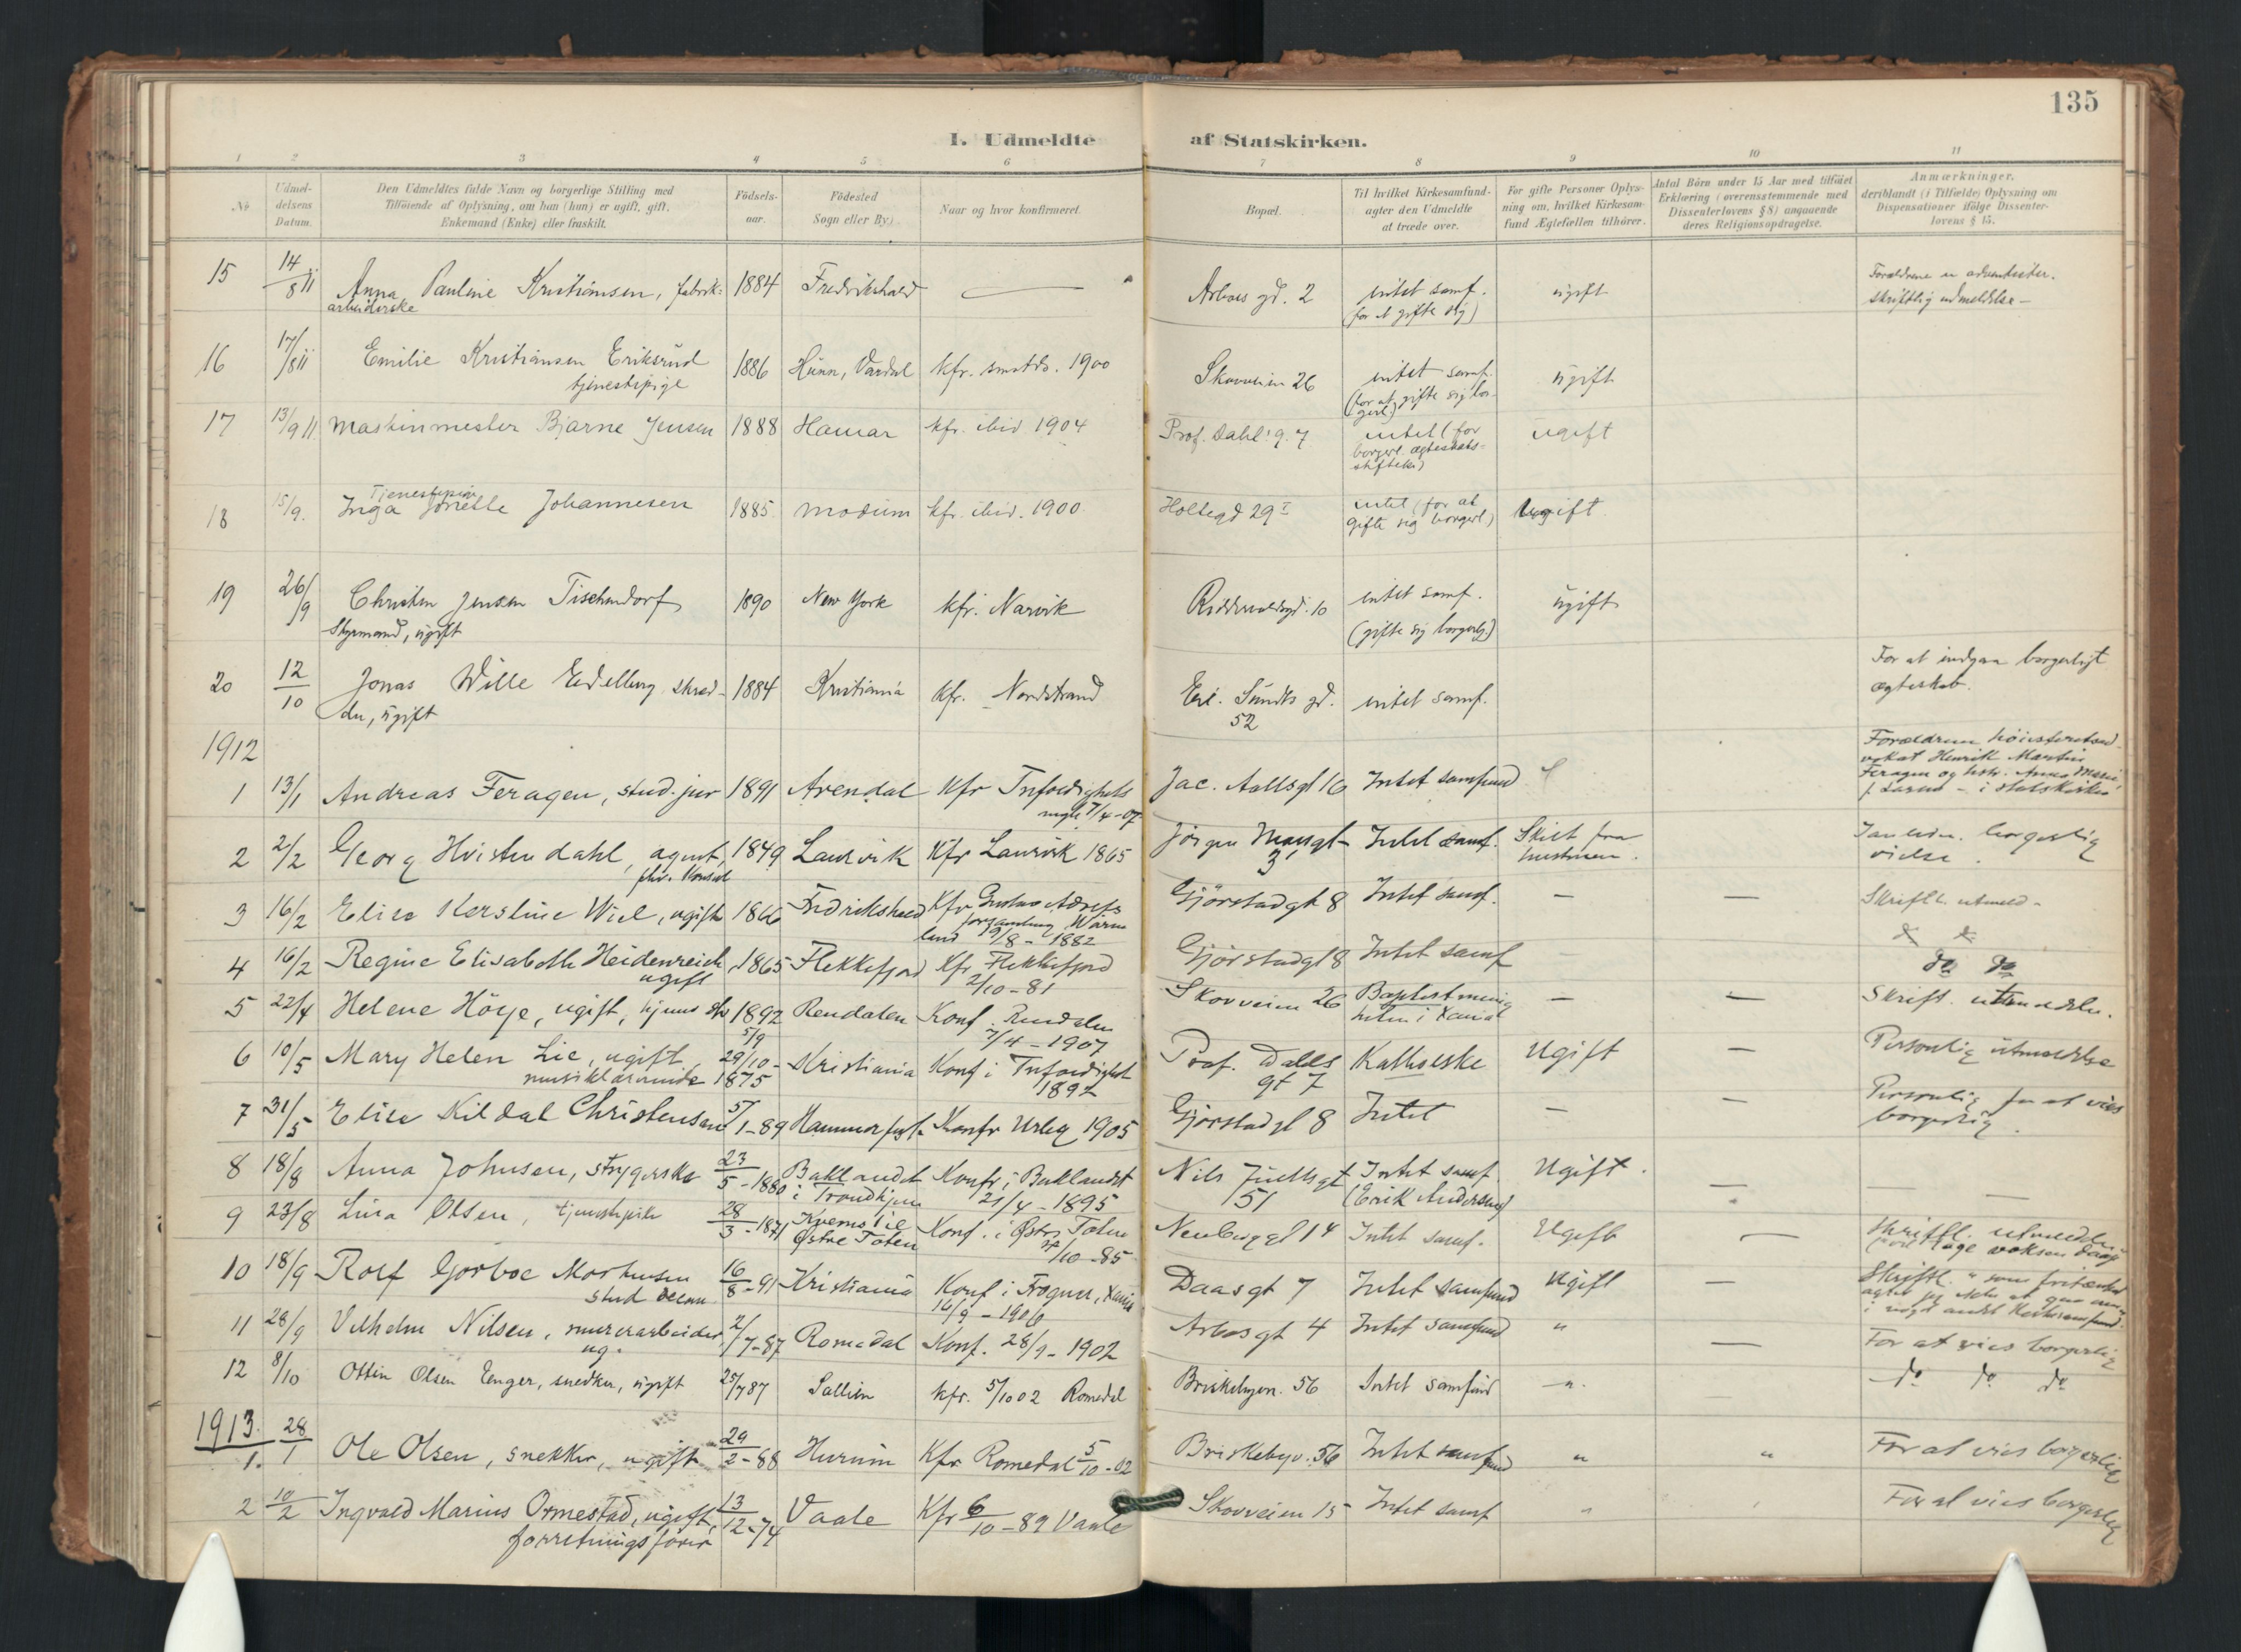 135
I. Udmeldte af Statskirken.
1 2 3 4 5 6 7 8 9 10 11
№
Udmel-
delsens
Datum.
Den Udmeldtes fulde Navn og borgerlige Stilling med
Tilföiende af Oplysning, om han (hun) er ugift, gift,
Enkemand (Enke) eller fraskilt.
Födsels-
aar.
Födested
Sogn eller By.
Naar og hvor konfirmeret.
Bopæl.
Til hvilket Kirkesamfund
agter den Udmeldte
at træde over.
For gifte Personer Oplys-
ning om, hvilket Kirkesam-
fund Ægtefællen tilhörer.
Antal Börn under 15 Aar med tilföiet
Erklæring (overensstemmende med
Dissenterlovens § 8) angaaende
deres Religionsopdragelse.
Anmærkninger.
deriblandt (i Tilfælde) Oplysning om
Dispensationer ifölge Dissenter-
lovens § 15.
15 14/8 11 Anna Pauline Kristiansen, fabrik- 1884 Fredrikshald — Arbos gd. 2 intet samf. ugift Forældrene er adventister.
arbeiderske (for at gifte sig) skriftlig udmeldelse –
16 17/8 11 Emilie Kristiansen Eriksrud 1886 Hunn, Vardal kfr. smstds. 1900 Skovveien 26 intet samf. ugift
tjenestepige (for at gifte sig bor-
gerl)
17 13/9 11 Maskinmester Bjarne Jensen 1888 Hamar kfr. ibid 1904 Prof. Dahls g. 7 intet (for ugift
borgerl. ægteskabs-
stiftelse)
Tjenestepige
18 15/9. Inga Jonette Johannesen 1885 Modum kfr. ibid. 1900 Holtegd 29 I intet (for at ugift
gifte sig borgerl)
19 26/9 Christen Jensen Tischendorf 1890 New York kfr. Narvik Riddervoldsgd. 10 intet samf. ugift
Styrmand, ugift (gifte sig borgerlg.)
20 12/10 Jonas Wille Eedelberg skræd- 1884 Kristiania kfr. Nordstrand Eil. Sundts gd. intet samf. For at indgaa borgerligt
der, ugift 52 ægteskab.
1912
1 13/1 Andreas Feragen, stud. jur 1891 Arendal Kfr Trefoldigheds Jac. Aallsgt 16 Intet samfund Forældrene høiesteretsad-
mgh 7/4-07 vokat Henrik Martin
Feragen og hstr. Anna Marie
f. Larsen – i statskirken
2 2/2 Georg Hvistendahl, agent, 1849 Laurvik Kfr Laurvik 1865 Jørgen Moesgt- Intet samf. Skilt fra borgerlig
fhv. Konsul 3 hustruen. vielse.
3 16/2 Elise Kerstine Wiel, ugift 1866 Fredrikshald Kfr Gustav Adolfs Gjörstadgt 8 Intet samf. — — Skriftl. utmeld-
forsamling Värm
land 9/8 - 1882
4 16/2 Regine Elisabeth Heidenreich, 1865 Flekkefjord Kfr Flekkefjord Gjörstadgt 8 Intet samf do do
ugift 2/10-81
5 22/4 Helene Höye, ugift, 1892 Rendalen Konf. Rendalen Skovveien 26 Baptistmenig — — Skriftl. utmeldelse.
5/9 7/4 - 1907 heten i Xania
6 10/5 Mary Helen Lie, ugift, 29/10- Kristiania Konf i Trefoldighet Prof. Dahls Katholske Ugift — Personlig utmeldelse
musiklærerinde 1875 1892 gt 7
7 31/5 Elise Kildal Christensen 5/1-89 Hammerfest Konfr Urby 1905 Gjörstadgt 8 Intet — — Personlig for at vies
borgerlig.
8 18/8 Anna Johnsen, strygerske 23/5-1880 Baklandet Konfr i Baklandet Nils Juellsgt Intet samf. Ugift. —
i Trondhjem 21/4 - 1895 51 (Erik Anderssen)
9 23/8 Lina Olsen, tjenestepike 28/3-1871 Konf. i Østre Toten Neubergt 14 Intet samf. Ugift — Skriftl. utmeldelse
Østre Toten /10-85 voksen daap
10 18/9 Rolf Gorboe Morthensen 16/8-91 Kristiania Konf i Frogner, Xania Daasgt 7 Intet samfund Ugift — Skriftl. " som fritænker
stud 16/9 - 1906
11 28/9 Vilhelm Nilsen, murerarbeider 2/7-87 Romedal Konf. 28/9 - 1902 Arbosgt 4 Intet samfund " — For at vies borgerlig
ug.
12 8/10 Ottin Olsen Enger, snedker, ugift 25/7 87 Sallien kfr. 5/10 02 Romedal Briskebyvn. 56 Intet samfund -"- do do do
1913.
1. 28/1 Ole Olsen, snekker, ugift 29/2-88 Hurum Kfr Romedal 5/10-02 Briskebyv. 56 Intet samfund " " For at vies borgerlig
2 10/2 Ingvald Marius Ormestad, ugift, 13/12-74 Vaale Kfr 6/10-89 Vaale Skovveien 15 Intet samf " For at vies borgerlig
forretningsfører